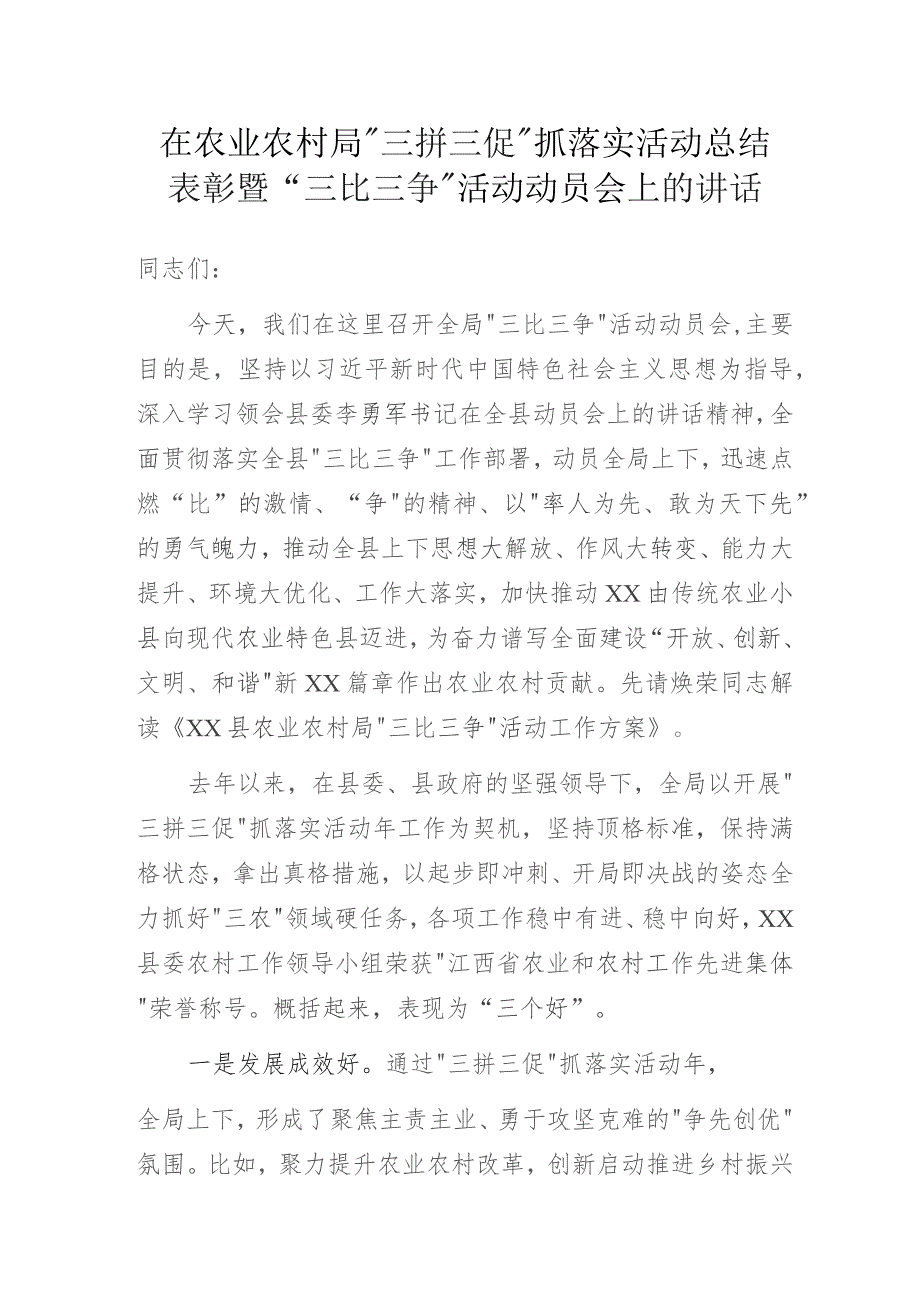 在农业农村局"三拼三促"抓落实活动总结
表彰暨“三比三争"活动动员会上的讲话
同志们：
今天，我们在这里召开全局"三比三争"活动动员会,主要
目的是，坚持以习近平新时代中国特色社会主义思想为指导，
深入学习领会县委李勇军书记在全县动员会上的讲话精神，全
面贯彻落实全县"三比三争"工作部署，动员全局上下，迅速点
燃“比”的激情、“争"的精神、以"率人为先、敢为天下先”
的勇气魄力，推动全县上下思想大解放、作风大转变、能力大
提升、环境大优化、工作大落实，加快推动 XX 由传统农业小
县向现代农业特色县迈进，为奋力谱写全面建设“开放、创新、
文明、和谐"新 XX 篇章作出农业农村贡献。先请焕荣同志解
读《XX 县农业农村局"三比三争"活动工作方案》。
去年以来，在县委、县政府的坚强领导下，全局以开展"
三拼三促"抓落实活动年工作为契机，坚持顶格标准，保持满
格状态，拿出真格措施，以起步即冲刺、开局即决战的姿态全
力抓好"三农"领域硬任务，各项工作稳中有进、稳中向好，XX
县委农村工作领导小组荣获"江西省农业和农村工作先进集体
"荣誉称号。概括起来，表现为“三个好”。
一是发展成效好。通过"三拼三促"抓落实活动年，
全局上下，形成了聚焦主责主业、勇于攻坚克难的"争先创优"
氛围。比如，聚力提升农业农村改革，创新启动推进乡村振兴